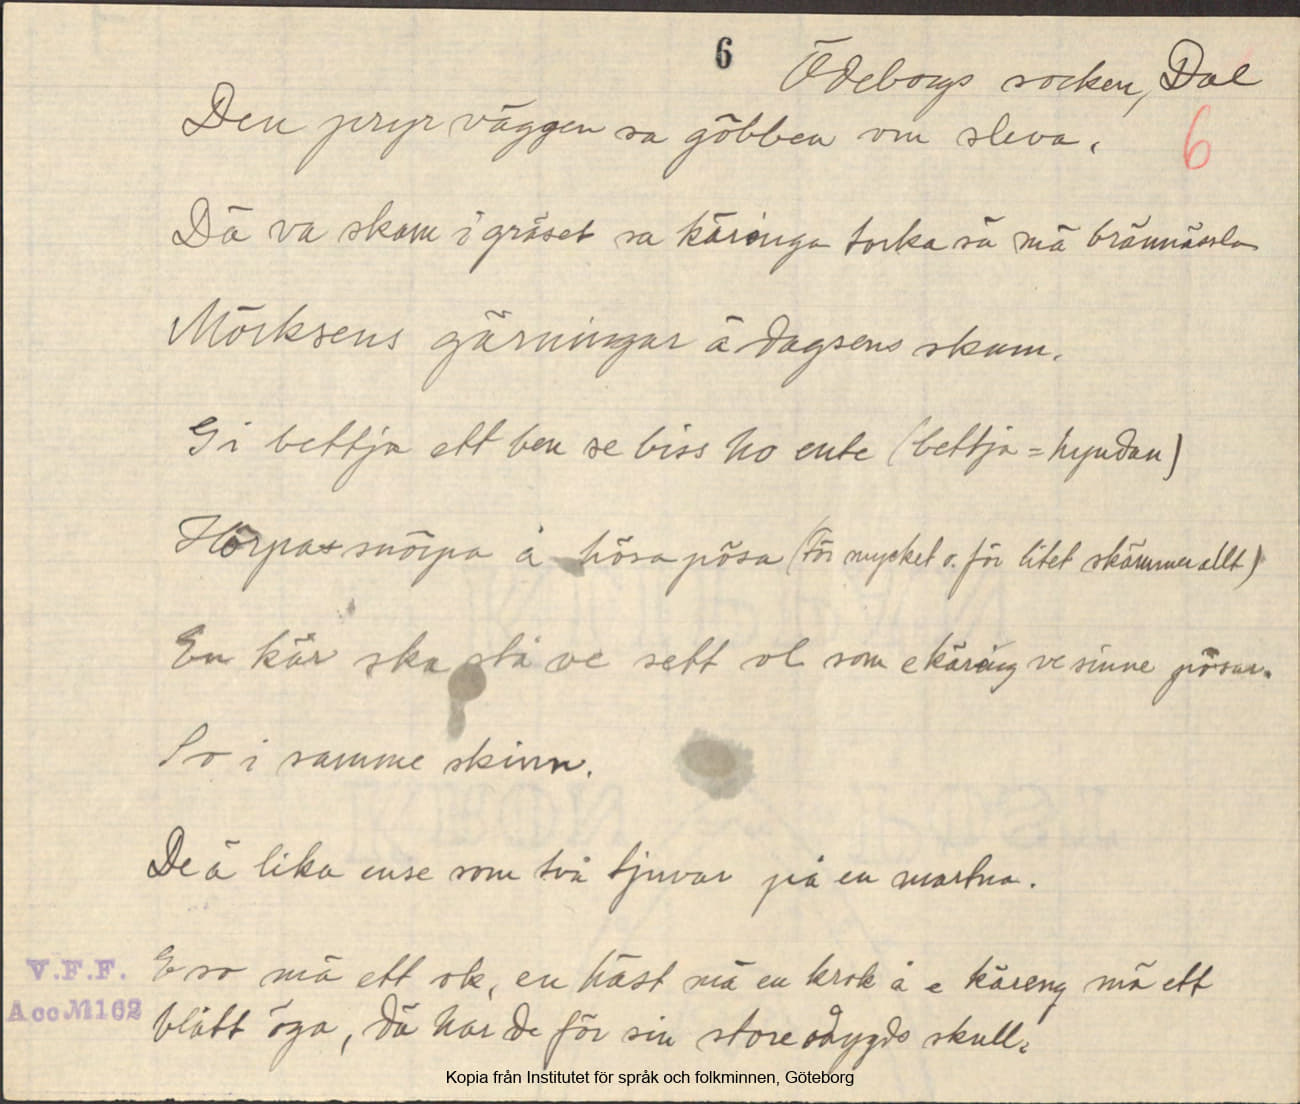 6
Ödeborgs socken, Dal
6
Den pryr väggen sa göbben om sleva.
Dä va skam i gräset sa käringa torka sä mä brännässla
Mörksens gärningar ä dagsens skam.
Gi bettja ett ben se biss ho ente (bettja = hyndan)
snörpa å hösa pösa (För mycket o. för litet skämmer allt)
En kär ska stå ve sett ol som e käring ve sinne pösar.
So i samme skinn.
De ä lika ense som två tjuvar på en martna.
E so mä ett ok, en häst mä en krok å e käreng mä ett
blått öga, dä har de för sin store odygds skull.
V.F.F.
Acc M162
Kopia från Institutet för språk och folkminnen, Göteborg